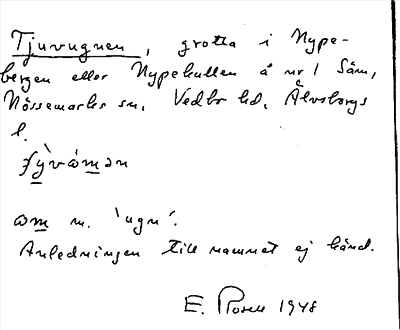 Tjuvugnen, grotta i Nype-
bergen eller Nypekullen å nr 1 Säm,
Nössemarks sn, Vedbo hd, Älvsborgs
l.
om m. 'ugn'.
Anledningen till namnet ej känd.
E. Rosell 1948